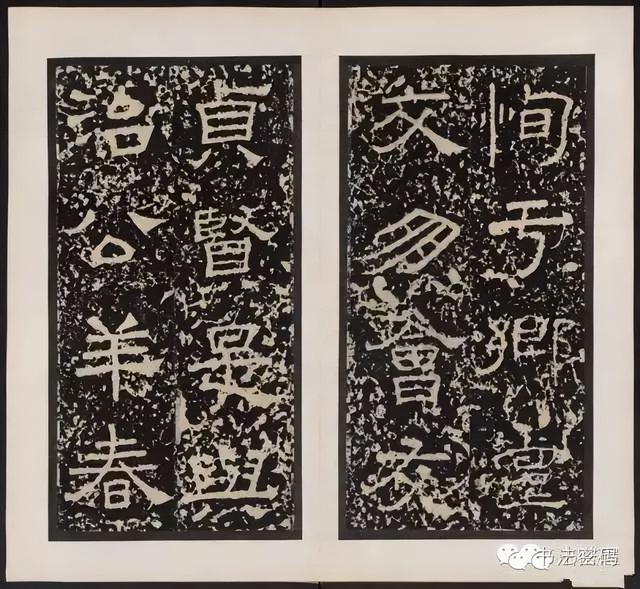 恂于鄉黨
交朋會友
貞賢是與
治公羊春
书法密码